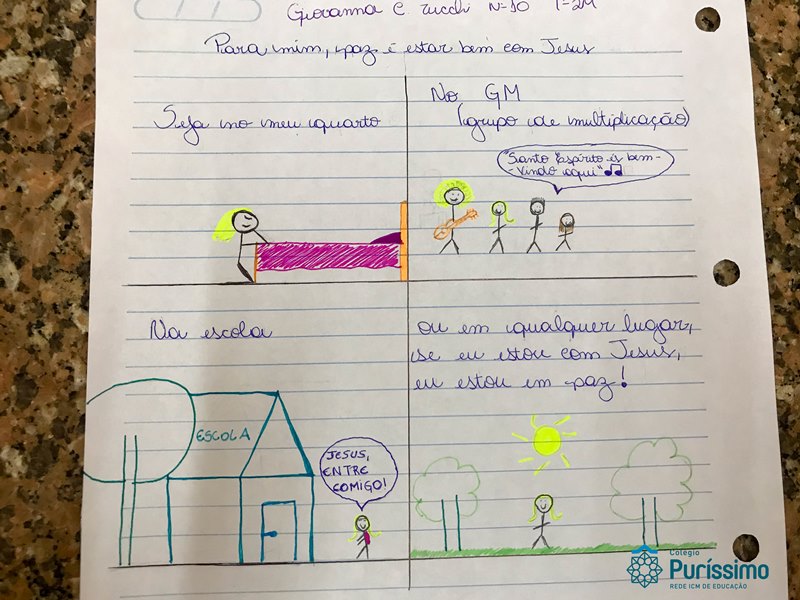 Giovanna C. Zucchi N=10 T=2M
Para mim, paz é estar bem com Jesus
Seja no meu quarto
No GM
(grupo de multiplicação)
"Santo Espírito és bem-
-vindo aqui"
Na escola
ou em qualquer lugar,
se eu estou com Jesus,
eu estou em paz!
ESCOLA
JESUS,
ENTRE
COMIGO!
Colégio
Puríssimo
REDE ICM DE EDUCAÇÃO